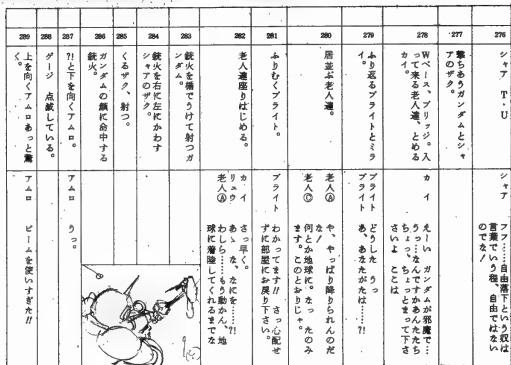 276
シャア T・U
シャア
フフ……自由落下という奴は
言葉でいう程、自由ではない
のでな!
277
撃ちあうガンダムとシャ
アのザク。
278
Wベース、ブリッジ。入
って来る老人達、とめる
カイ。
カイ
えーい ガンダムが邪魔で…
うっ…なんですかあんたたち
ちょっと、ちょっとまって下
さいよ ここは
279
ふり返るブライトとミラ
イ。
ブライト
どうした うっ
ブライト
あ、あなたがたは……?!
280
居並ぶ老人達。
老人Ⓐ
や、やっぱり降りられんのだ
な!
老人Ⓒ
何とか地球に。なっ たのみ
ます。このとおりじゃ。
281
ふりむくブライト。
ブライト
わかってます!! さっ心配せ
ずに部屋にお戻り下さい。
282
老人達座りはじめる。
カイ
さっ早く。
リュウ
あゝ な、なにを……?!
老人Ⓐ
わしら……もう動かん、地
球に着陸してくれるまでな
283
銃火を楯でうけて射つガ
ンダム。
284
銃火を右に左にかわす
シャアのザク。
285
くるザク、射つ。
286
ガンダムの顔に命中する
銃火。
287
?!と下を向くアムロ。
アムロ
うっ。
288
ゲージ 点滅している。
289
上を向くアムロあっと驚
く。
アムロ
ビームを使いすぎた!!